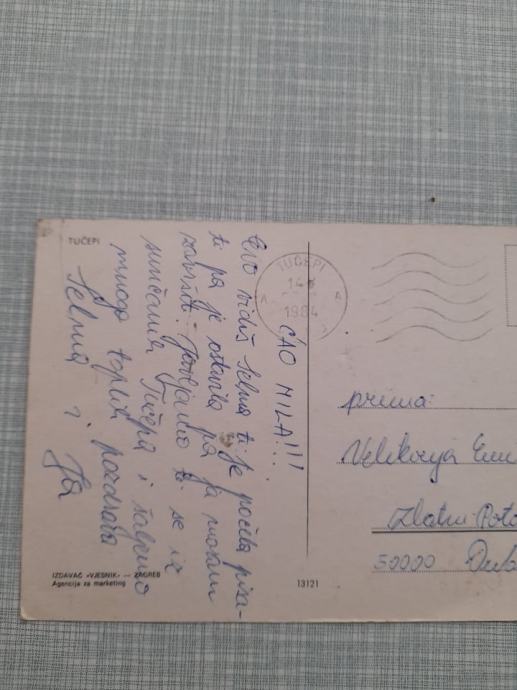 TUČEPI
ĆAO MILA!!!
Evo vidiš Selma ti je počela pisa-
ti pa je ostavila pa ja moram
završit. Javljamo ti se iz
sunčanih Tučepa i šaljemo
mnogo toplih pozdrava
Selma i Ja
TUČEPI
1984
prima:
Velikonja
Zlatni
50000
IZDAVAČ «VJESNIK» — ZAGREB
Agencija za marketing
13121